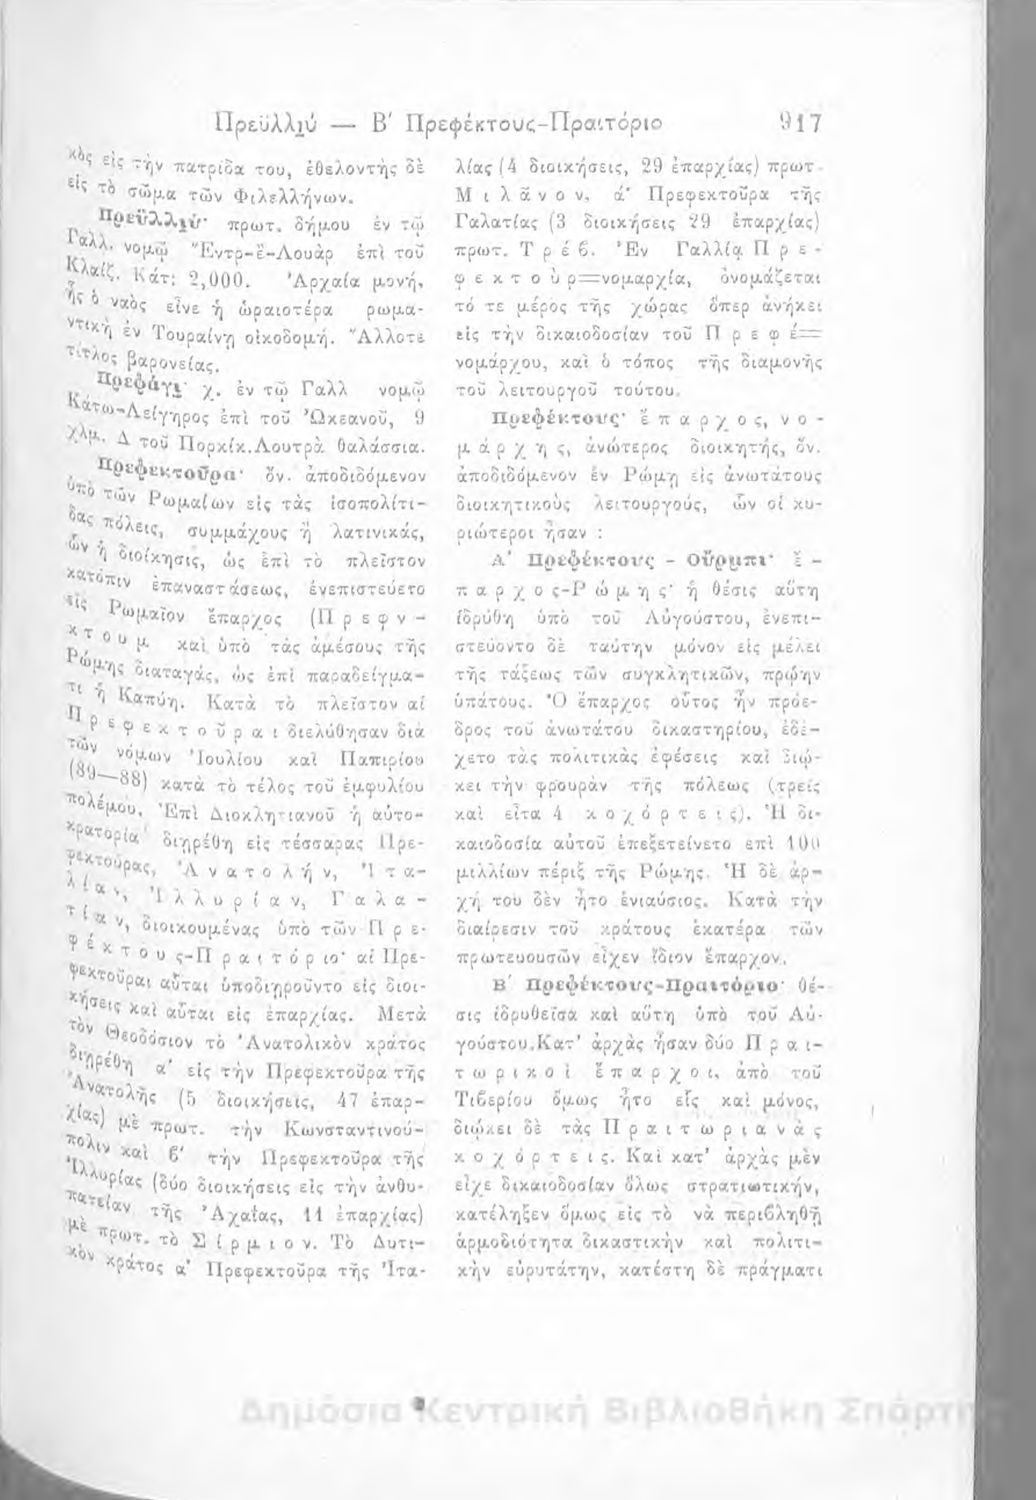 Πρεϋλλιύ — Β′ Πρεφέκτους-Πραιτόριο 917
κὸς εἰς τὴν πατρίδα του, ἐθελοντὴς δὲ
εἰς τὸ σῶμα τῶν Φιλελλήνων.
Πρεϋλλιύ· πρωτ. δήμου ἐν τῷ
Γαλλ. νομῷ Ἔντρ-ἒ-Λουὰρ ἐπὶ τοῦ
Κλαίζ. Κάτ: 2,000. Ἀρχαία μονή,
ἧς ὁ ναὸς εἶνε ἡ ὡραιοτέρα ρωμα-
ντικὴ ἐν Τουραίνῃ οἰκοδομή. Ἄλλοτε
τίτλος βαρονείας.
Πρεφάγι· χ. ἐν τῷ Γαλλ νομῷ
Κάτω-Λείγηρος ἐπὶ τοῦ Ὠκεανοῦ, 9
χλμ. Δ τοῦ Πορκίκ.Λουτρὰ θαλάσσια.
Πρεφεκτοῦρα· ὄν. ἀποδιδόμενον
ὑπὸ τῶν Ρωμαίων εἰς τὰς ἰσοπολίτι-
δας πόλεις, συμμάχους ἢ λατινικάς,
ὧν ἡ διοίκησις, ὡς ἐπὶ τὸ πλεῖστον
κατόπιν ἐπαναστάσεως, ἐνεπιστεύετο
εἰς Ρωμαῖον ἔπαρχος (Π ρ ε φ ν -
κ τ ο υ μ καὶ ὑπὸ τὰς ἀμέσους τῆς
Ρώμης διαταγάς, ὡς ἐπὶ παραδείγμα-
τι ἡ Καπύη. Κατὰ τὸ πλεῖστον αἱ
Π ρ ε φ ε κ τ ο ῦ ρ α ι διελύθησαν διὰ
τῶν νόμων Ἰουλίου καὶ Παπιρίου
(89—88) κατὰ τὸ τέλος τοῦ ἐμφυλίου
πολέμου. Ἐπὶ Διοκλητιανοῦ ἡ αὐτο-
κρατορία διῃρέθη εἰς τέσσαρας Πρε-
φεκτούρας, Ἀ ν α τ ο λ ή ν, Ἰ τ α-
λ ί α ν, Ἰ λ λ υ ρ ί α ν, Γ α λ α -
τ ί α ν, διοικουμένας ὑπὸ τῶν Π ρ ε-
φ έ κ τ ο υ ς-Π ρ α ι τ ό ρ ιο· αἱ Πρε-
φεκτοῦραι αὗται ὑποδιῃροῦντο εἰς διοι-
κήσεις καὶ αὗται εἰς ἐπαρχίας. Μετὰ
τὸν Θεοδόσιον τὸ Ἀνατολικὸν κράτος
διῃρέθη α′ εἰς τὴν Πρεφεκτοῦρα τῆς
Ἀνατολῆς (5 διοικήσεις, 47 ἐπαρ-
χίας) μὲ πρωτ. τὴν Κωνσταντινού-
πολιν καὶ β′ τὴν Πρεφεκτοῦρα τῆς
Ἰλλυρίας (δύο διοικήσεις εἰς τὴν ἀνθυ-
πατείαν τῆς Ἀχαΐας, 11 ἐπαρχίας)
μὲ πρωτ. τὸ Σ ί ρ μ ι ο ν. Τὸ Δυτι-
κὸν κράτος α′ Πρεφεκτοῦρα τῆς Ἰτα-
λίας (4 διοικήσεις, 29 ἐπαρχίας) πρωτ.
Μ ι λ ᾶ ν ο ν, ά′ Πρεφεκτοῦρα τῆς
Γαλατίας (3 διοικήσεις 29 ἐπαρχίας)
πρωτ. Τ ρ έ β. Ἐν Γαλλίᾳ Π ρ ε -
φ ε κ τ ο ὺ ρ=νομαρχία, ὀνομάζεται
τό τε μέρος τῆς χώρας ὅπερ ἀνήκει
εἰς τὴν δικαιοδοσίαν τοῦ Π ρ ε φ έ=
νομάρχου, καὶ ὁ τόπος τῆς διαμονῆς
τοῦ λειτουργοῦ τούτου.
Πρεφέκτους· ἔ π α ρ χ ο ς, ν ο -
μ ά ρ χ η ς, ἀνώτερος διοικητής, ὄν.
ἀποδιδόμενον ἐν Ρώμῃ εἰς ἀνωτάτους
διοικητικοὺς λειτουργούς, ὧν οἱ κυ-
ριώτεροι ἦσαν :
Α′ Πρεφέκτους - Οὔρμπι· ἔ -
π α ρ χ ο ς-Ρ ώ μ η ς· ἡ θέσις αὕτη
ἱδρύθη ὑπὸ τοῦ Αὐγούστου, ἐνεπι-
στεύοντο δὲ ταύτην μόνον εἰς μέλει
τῆς τάξεως τῶν συγκλητικῶν, πρῴην
ὑπάτους. Ὁ ἔπαρχος οὗτος ἦν πρόε-
δρος τοῦ ἀνωτάτου δικαστηρίου, ἐδέ-
χετο τὰς πολιτικὰς ἐφέσεις καὶ διῴ-
κει τὴν φρουρὰν τῆς πόλεως (τρεῖς
καὶ εἶτα 4 κ ο χ ό ρ τ ε ι ς). Ἡ δι-
καιοδοσία αὐτοῦ ἐπεξετείνετο ἐπὶ 100
μιλλίων πέριξ τῆς Ρώμης. Ἡ δὲ ἀρ-
χή του δὲν ἦτο ἐνιαύσιος. Κατὰ τὴν
διαίρεσιν τοῦ κράτους ἑκατέρα τῶν
πρωτευουσῶν εἶχεν ἴδιον ἔπαρχον.
Β′ Πρεφέκτους-Πραιτόριο· θέ-
σις ἱδρυθεῖσα καὶ αὕτη ὑπὸ τοῦ Αὐ-
γούστου.Κατ' ἀρχὰς ἦσαν δύο Π ρ α ι-
τ ω ρ ι κ ο ὶ ἔ π α ρ χ ο ι, ἀπὸ τοῦ
Τιβερίου ὅμως ἦτο εἷς καὶ μόνος,
διῴκει δὲ τὰς Π ρ α ι τ ω ρ ι α ν ὰ ς
κ ο χ ό ρ τ ε ι ς. Καὶ κατ' ἀρχὰς μὲν
εἶχε δικαιοδοσίαν ὅλως στρατιωτικήν,
κατέληξεν ὅμως εἰς τὸ νὰ περιβληθῇ
ἁρμοδιότητα δικαστικὴν καὶ πολιτι-
κὴν εὐρυτάτην, κατέστη δὲ πράγματι
Δημόσια Κεντρική Βιβλιοθήκη Σπάρτης